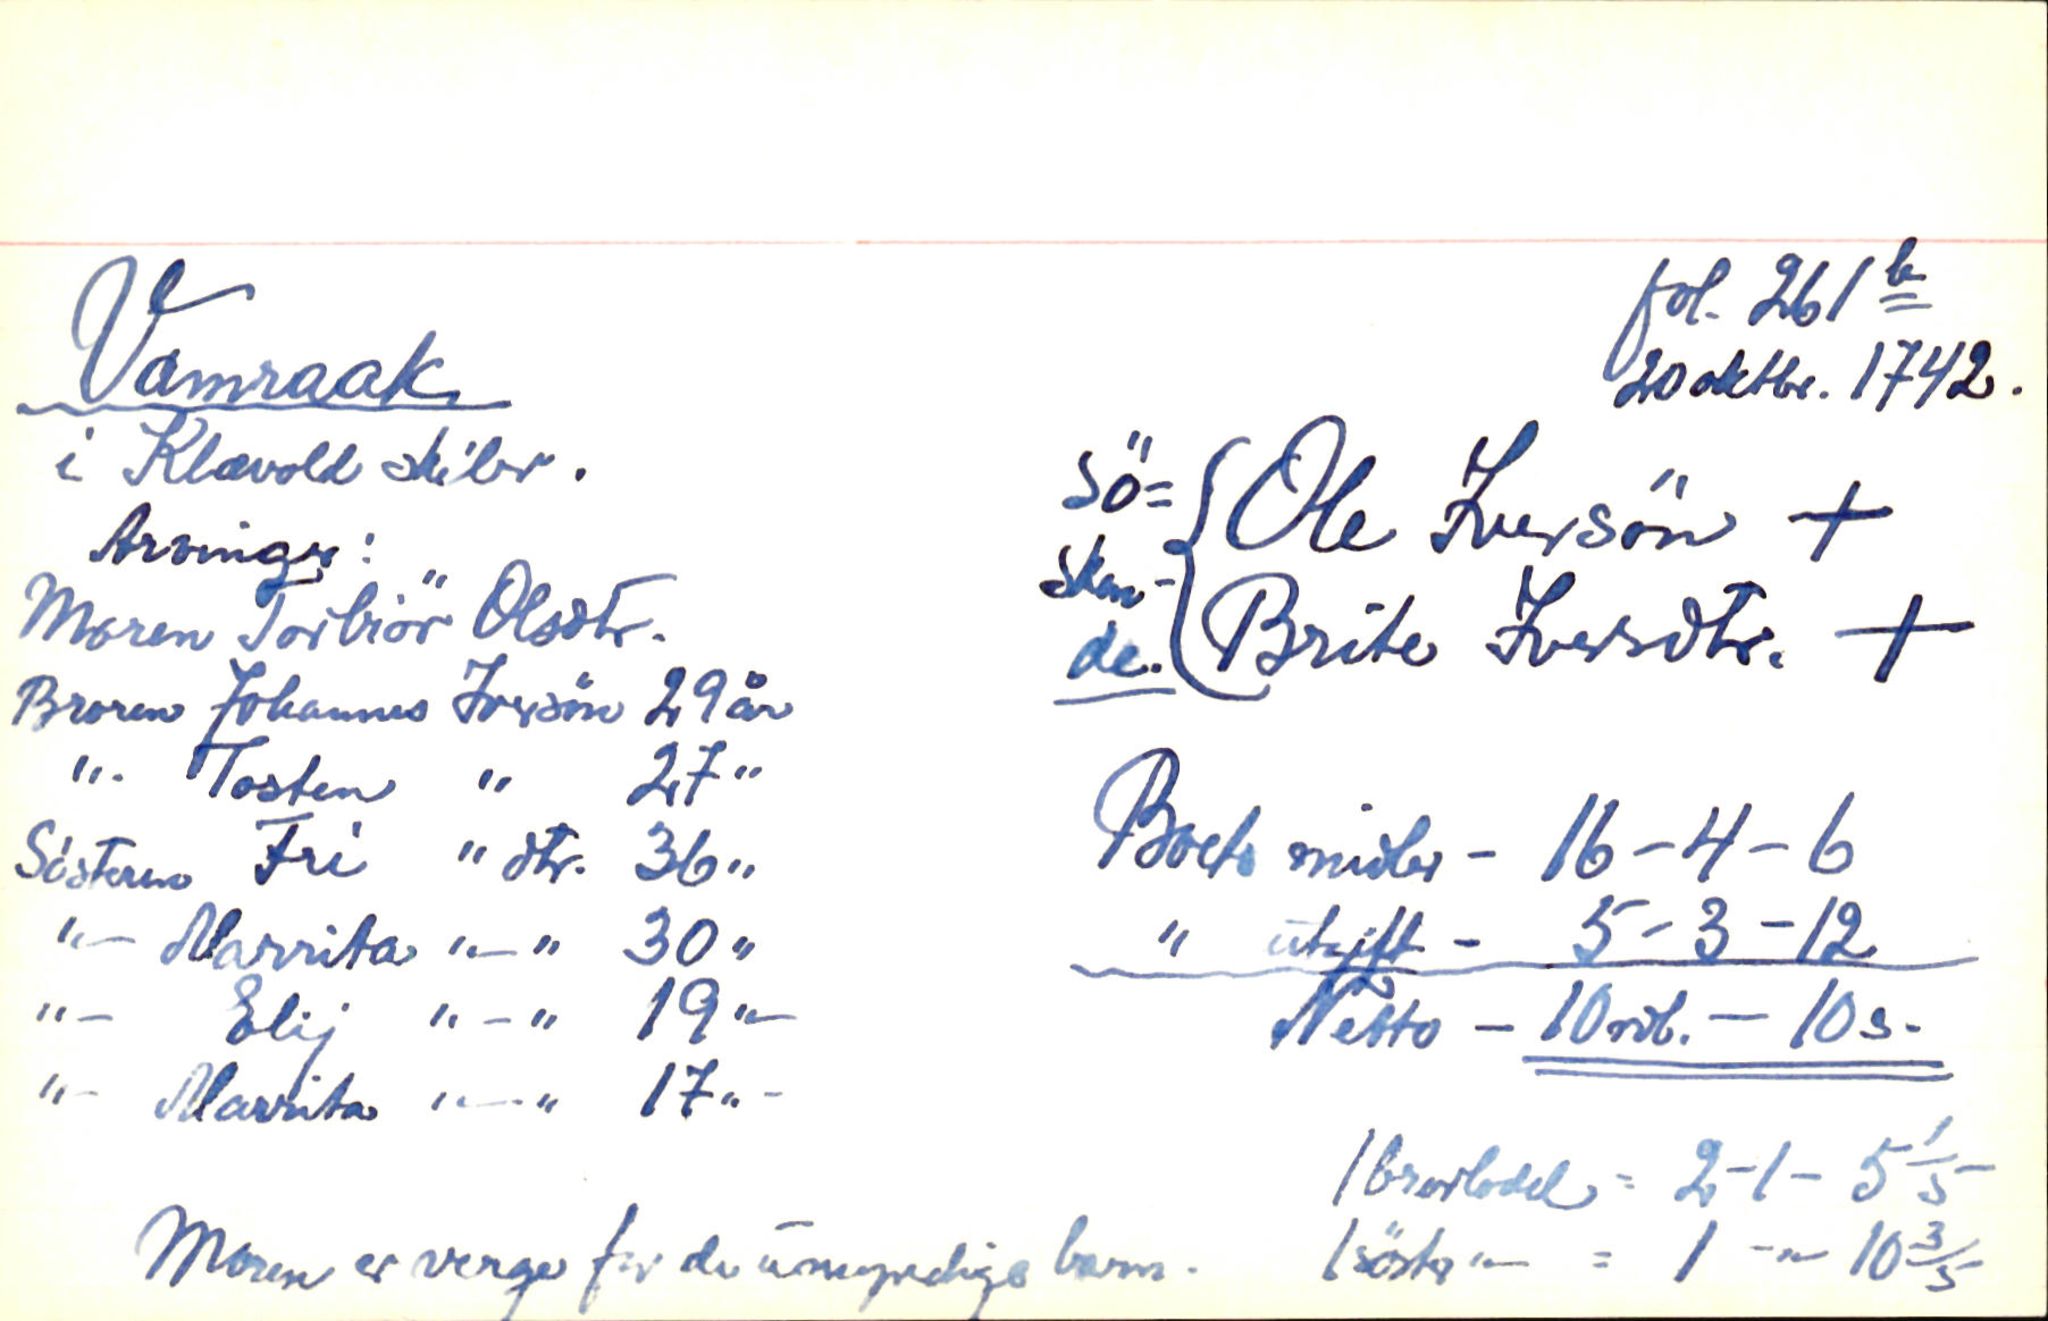 fol. 261 b
20 oktbr. 1742.
Vamraak
i Klævold skiber.
Sö=
sken-
de.
Ole Iversön +
Brite Iversdtr. +
Arvinger:
Moren Torbiör Olsdtr.
Broren Johannes Iversön 29 år
"- Tosten " 27 "
Söstern Fri " dtr. 36 "
"- Marrita "-" 30 "
"- Elij "-" 19 "-
"- Marrita "-" 17 "-
Boets midler - 16 - 4 - 6
" utgift - 5 - 3 - 12
Netto - 10 rdl. - 10 s.
1 brorlodd = 2 - 1 - 5 1/5
1 söster "- = 1 - "- 10 3/5
Moren er verge for de umyndige barn.